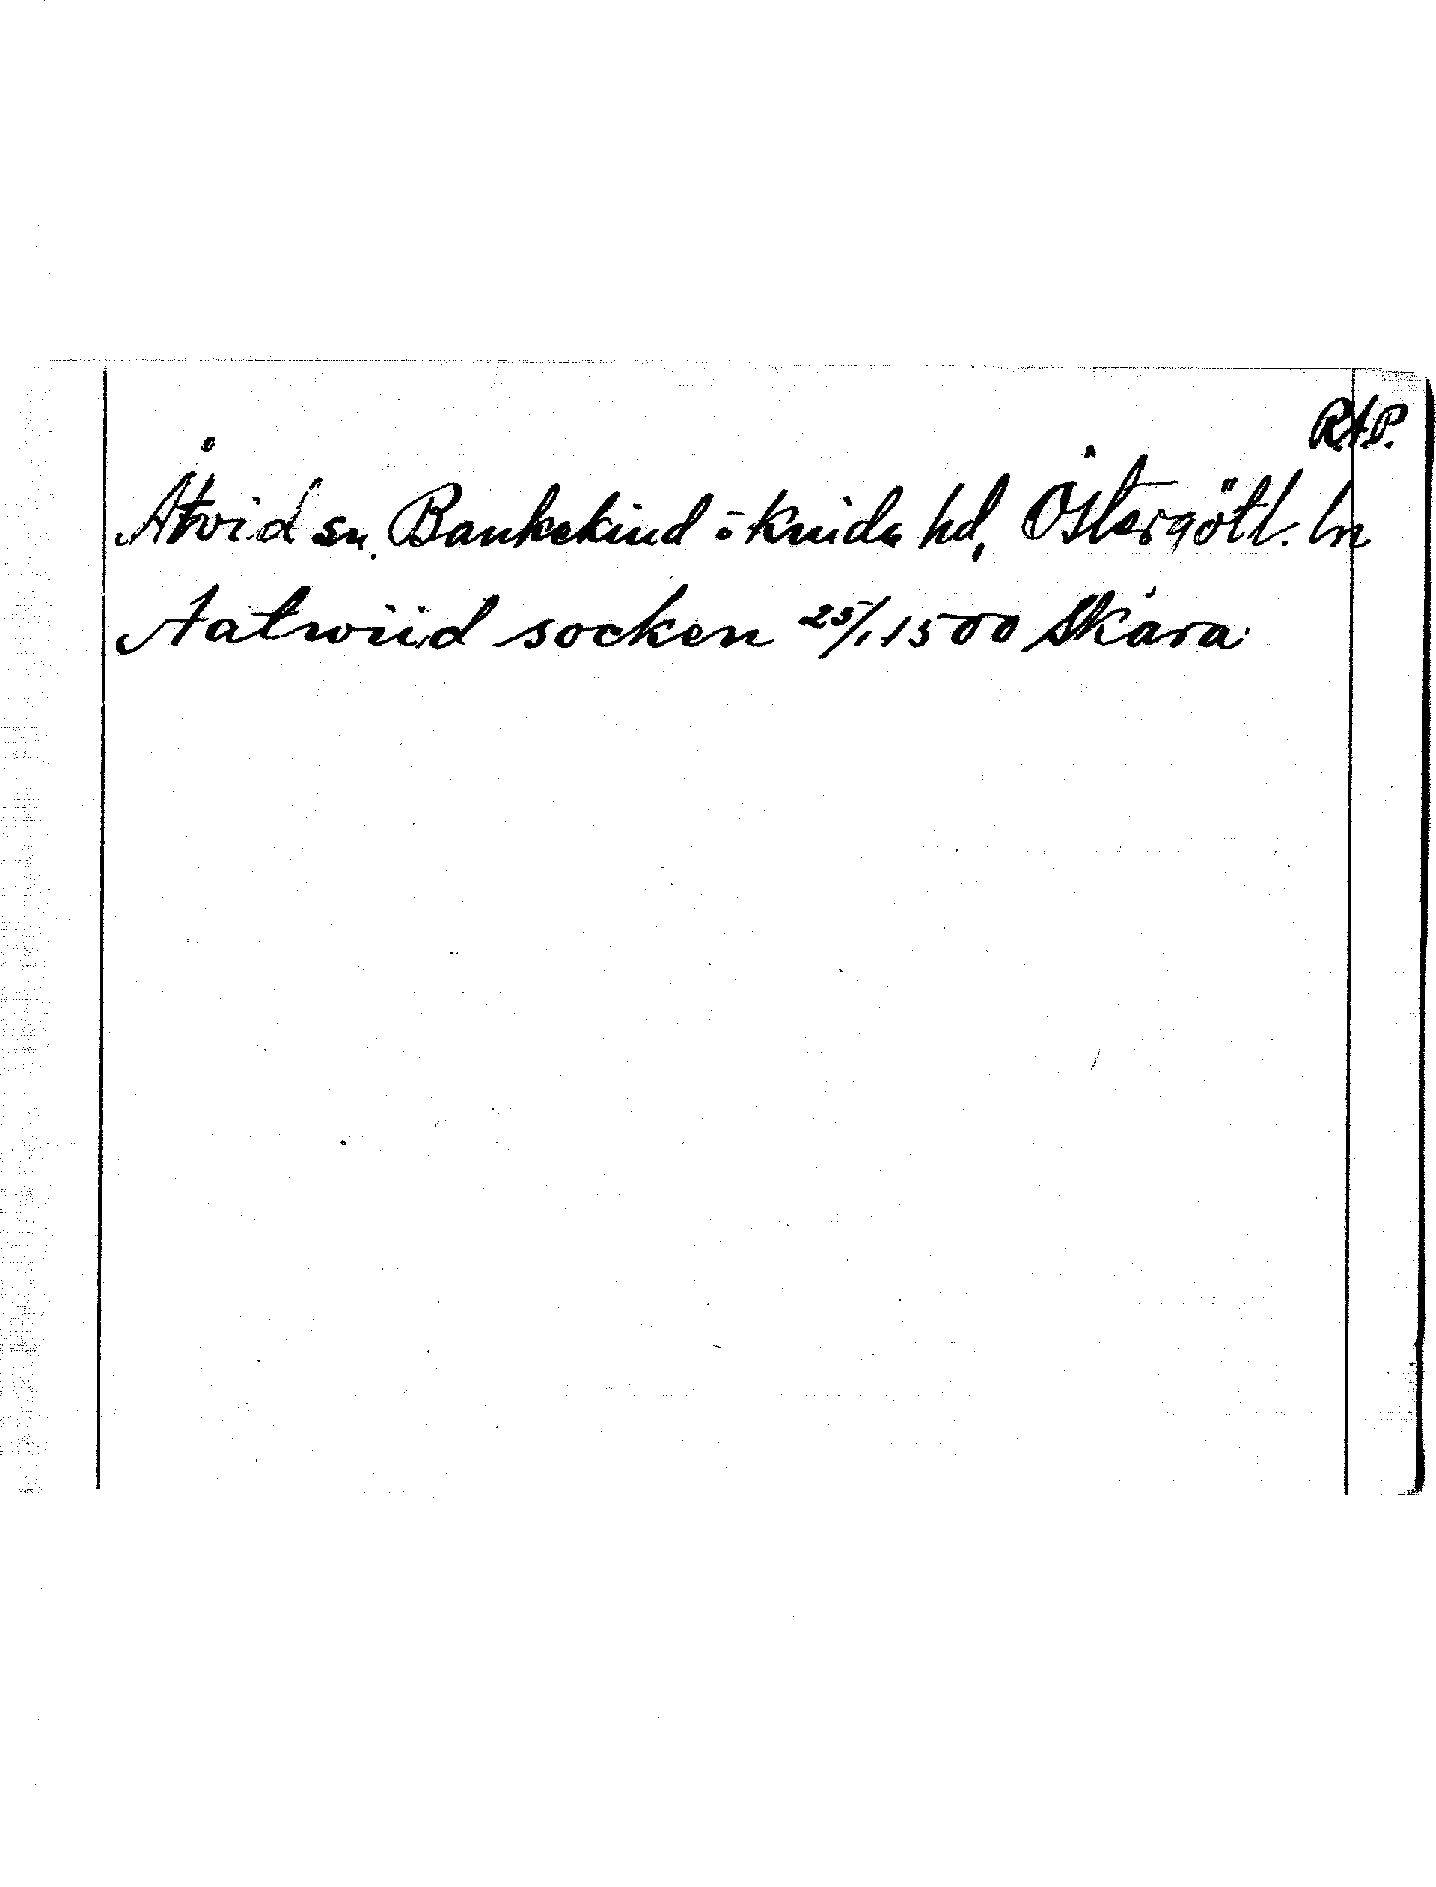 RAP.
Åtvid sn. Bankekind o kinda hd, Östergötl. ln
Aatwiid socken 25/1 1500 Skara